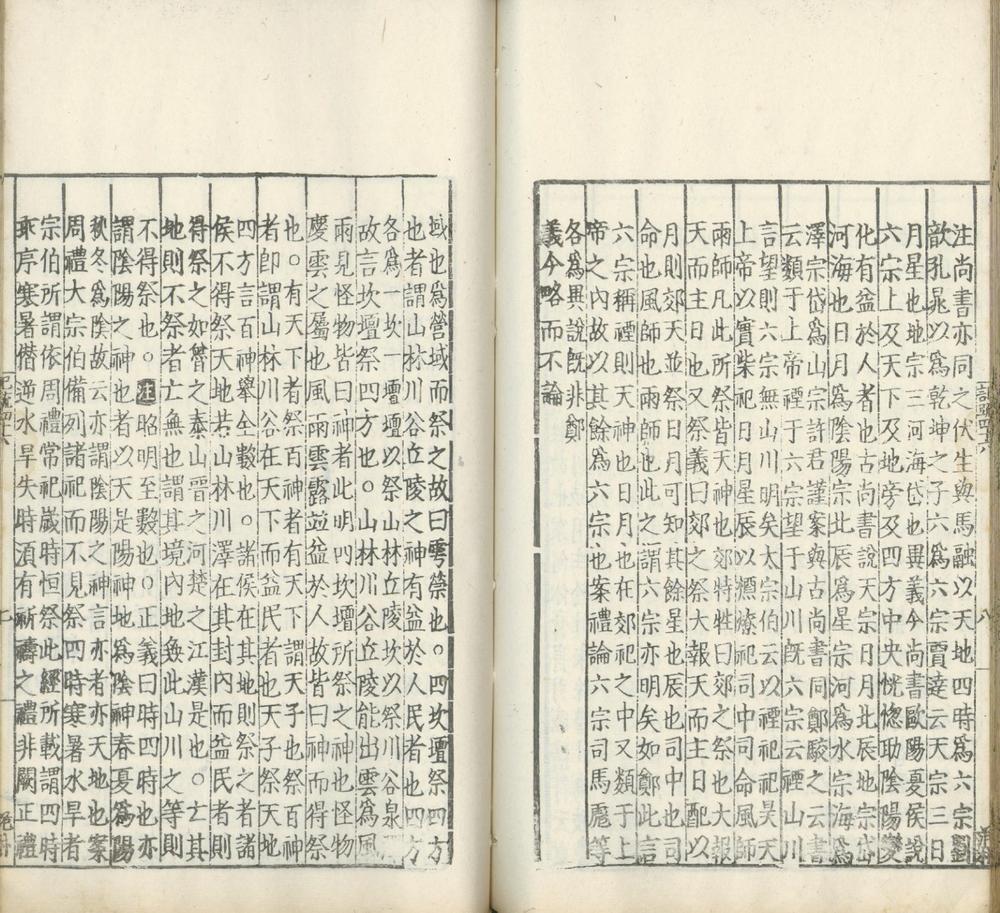 注尚書亦同之伏生與馬融以天地四時爲六宗劉
歆孔晁以爲乾坤之子六爲六宗賈逵云天宗三日
月星也地宗三河海岱也異義今尚書歐陽夏侯說
六宗上及天下及地旁及四方中央恍惚助陰陽變
化有益於人者也古尚書說天宗日月北辰地宗岱
河海也日月爲陰陽宗北辰爲星宗河爲水宗海爲
澤宗岱爲山宗許君謹案與古尚書同鄭駮之云書
云類于上帝禋于六宗望于山川旣六宗云禋山川
言望則六宗無山川明矣太宗伯云以禋祀祀昊天
上帝以實柴祀日月星辰以槱燎祀司中司命風師
雨師凡此所祭皆天神也郊特牲曰郊之祭也大報
天而主日也又祭義曰郊之祭大報天而主日配以
月則郊天並祭日月可知其餘星也辰也司中也司
命也風師也雨師也此之謂六宗亦明矣如鄭此言
六宗稱禋則天神也日月也在郊祀之中又類于上
帝之內故以其餘爲六宗也案禮論六宗司馬彪等
各爲異說旣非鄭
義今略而不論
域也爲營域而祭之故曰雩禜也○四坎壇祭四方
也者謂山林川谷丘陵之神有益於人民者也四方
各爲一坎一壇壇以祭山林丘陵坎以祭川谷泉
故言坎壇祭四方也○山林川谷丘陵能出雲爲風
雨見怪物皆曰神者此明四坎壇所祭之神也怪物
慶雲之屬也風雨雲露並益於人故皆曰神而得祭
也○有天下者祭百神者有天下謂天子也祭百神
者卽謂山林川谷在天下而益民者也天子祭天地
四方言百神舉全數也○諸侯在其地則祭之者諸
侯不得祭天地若山林川澤在其封內而益民者則
得祭之如魯之泰山晉之河楚之江漢是也○亡其
地則不祭者亡無也謂其境內地無此山川之等則
不得祭也○注昭明至數也○正義曰時四時也亦
謂陰陽之神也者以天是陽神地爲陰神春夏爲陽
秋冬爲陰故云亦謂陰陽之神言亦者亦天地也案
周禮大宗伯備列諸祀而不見祭四時寒暑水旱者
宗伯所謂依周禮常祀歲時恒祭此經所載謂四時
乖序寒暑僭逆水旱失時須有祈禱之禮非關正禮